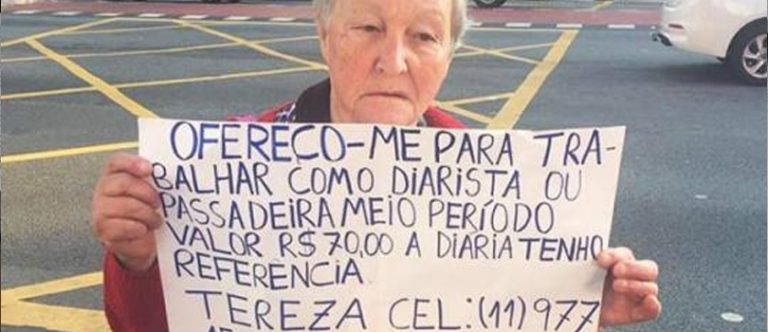 OFEREÇO-ME PARA TRA-
BALHAR COMO DIARISTA OU
PASSADEIRA MEIO PERÍODO
VALOR R$70,00 A DIARIA TENHO
REFERÊNCIA
TEREZA CEL:(11)977